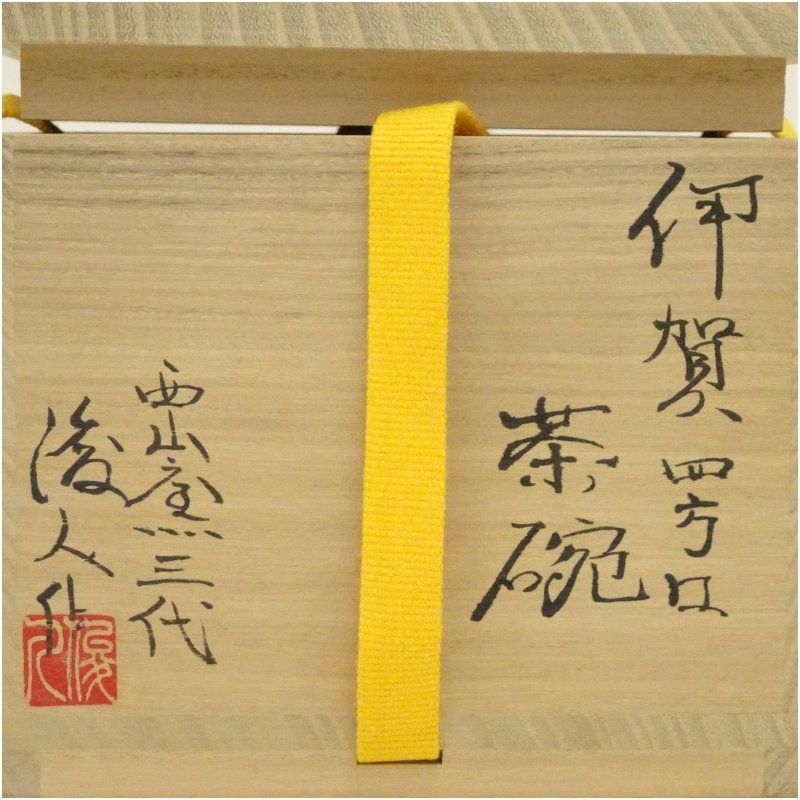 伊賀四方
茶碗
西山窯三代
俊人作
俊人